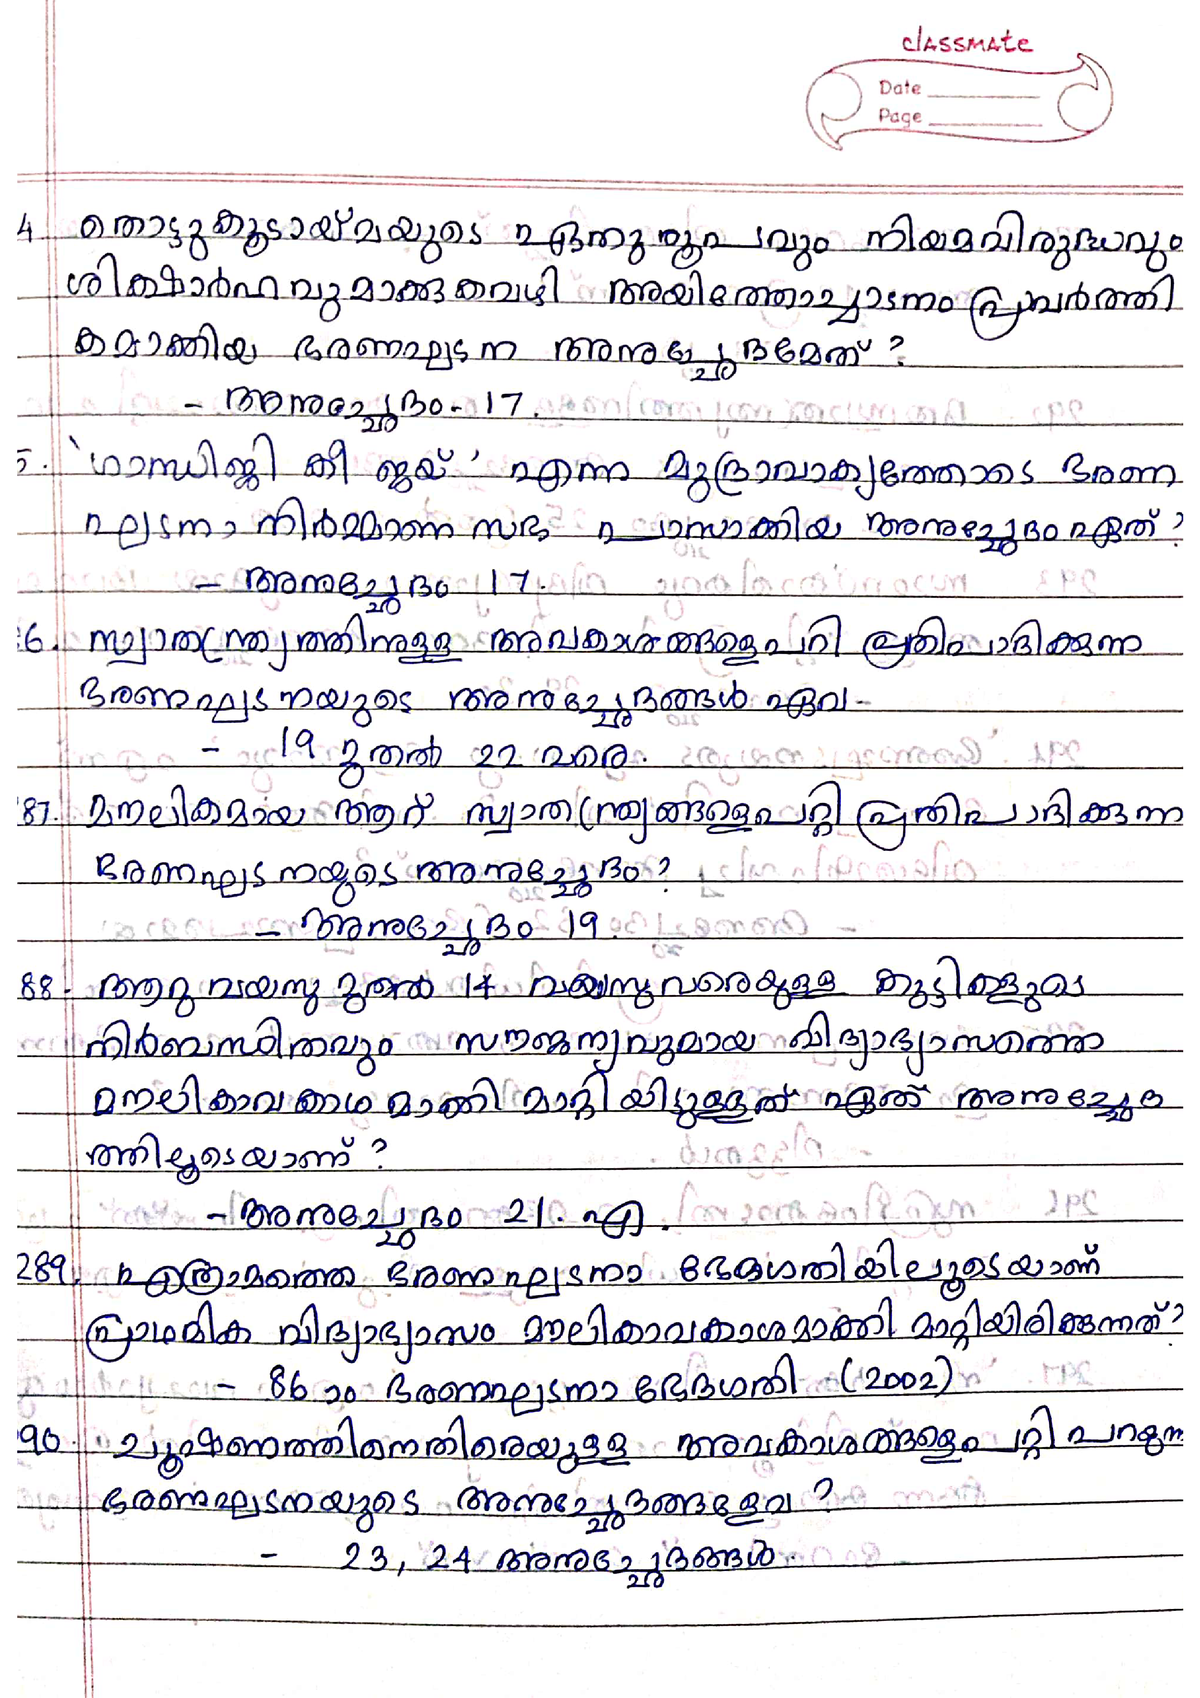 classmate
Date
Page
4. തൊട്ടുകൂടായ്മയുടെ ഏതുരൂപവും നിയമവിരുദ്ധവും
ശിക്ഷാർഹവുമാക്കുകവഴി അയിത്തോച്ചാടനം പ്രാവർത്തി
കമാക്കിയ ഭരണഘടന അനുച്ഛേദമേത്?
- അനുച്ഛേദം - 17.
5. 'ഗാന്ധിജി കീ ജയ്' എന്ന മുദ്രാവാക്യത്തോടെ ഭരണ
ഘടനാ നിർമ്മാണ സഭ പാസാക്കിയ അനുച്ഛേദം ഏത്?
- അനുച്ഛേദം 17.
86. സ്വാതന്ത്ര്യത്തിനുള്ള അവകാശങ്ങളെപറ്റി പ്രതിപാദിക്കുന്ന
ഭരണഘടനയുടെ അനുച്ഛേദങ്ങൾ ഏവ -
- 19 മുതൽ 22 വരെ.
87. മൗലികമായ ആറ് സ്വാതന്ത്ര്യങ്ങളെപറ്റി പ്രതിപാദിക്കുന്ന
ഭരണഘടനയുടെ അനുച്ഛേദം?
- അനുച്ഛേദം 19.
88. ആറു വയസു മുതൽ 14 വയസുവരെയുള്ള കുട്ടികളുടെ
നിർബന്ധിതവും സൗജന്യവുമായ വിദ്യാഭ്യാസത്തെ
മൗലികാവകാശമാക്കി മാറ്റിയിട്ടുള്ളത് ഏത് അനുച്ഛേദ
ത്തിലൂടെയാണ്?
- അനുച്ഛേദം 21. എ.
289. എത്രാമത്തെ ഭരണഘടനാ ഭേദഗതിയിലൂടെയാണ്
പ്രാഥമിക വിദ്യാഭ്യാസം മൗലികാവകാശമാക്കി മാറ്റിയിരിക്കുന്നത്?
- 86 ാം ഭരണഘടനാ ഭേദഗതി (2002)
90. ചൂഷണത്തിനെതിരെയുള്ള അവകാശങ്ങളെപറ്റി പറയുന്ന
ഭരണഘടനയുടെ അനുച്ഛേദങ്ങളേവ?
- 23, 24 അനുച്ഛേദങ്ങൾ.